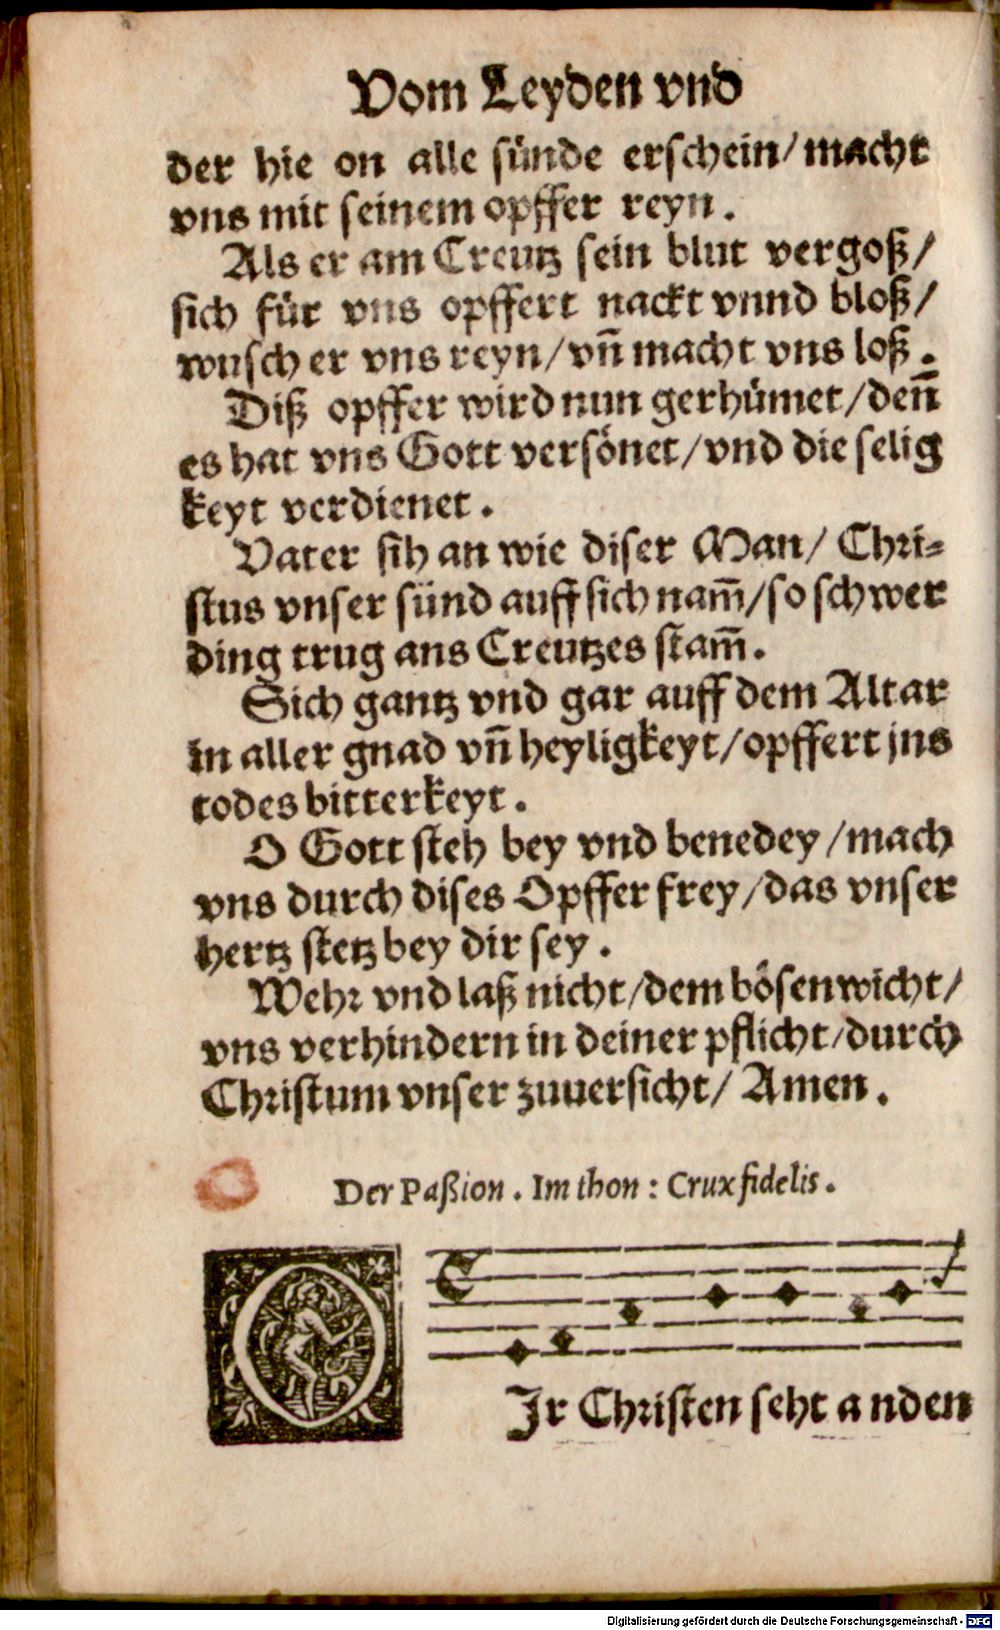 Vom Leyden vnd
der hie on alle sünde erschein/ macht
vns mit seinem opffer reyn.
Als er am Creutz sein blut vergoß/
sich für vns opffert nackt vnnd bloß/
wusch er vns reyn/ vñ macht vns loß.
Diß opffer wird nun gerhümet/ deñ
es hat vns Gott versönet/ vnd die selig
keyt verdienet.
Vater sih an wie diser Man/ Chri-
stus vnser sünd auff sich nam̃/ so schwer
ding trug ans Creutzes stam̃.
Sich gantz vnd gar auff dem Altar
in aller gnad vñ heyligkeyt/ opffert jns
todes bitterkeyt.
O Gott steh bey vnd benedey/ mach
vns durch dises Opffer frey/ das vnser
hertz stetz bey dir sey.
Wehr vnd laß nicht/ dem bösenwicht/
vns verhindern in deiner pflicht/ durch
Christum vnser zuuersicht/ Amen.
Der Paßion. Im thon: Crux fidelis.
O
Jr Christen seht an den
Digitalisierung gefördert durch die Deutsche Forschungsgemeinschaft - DFG